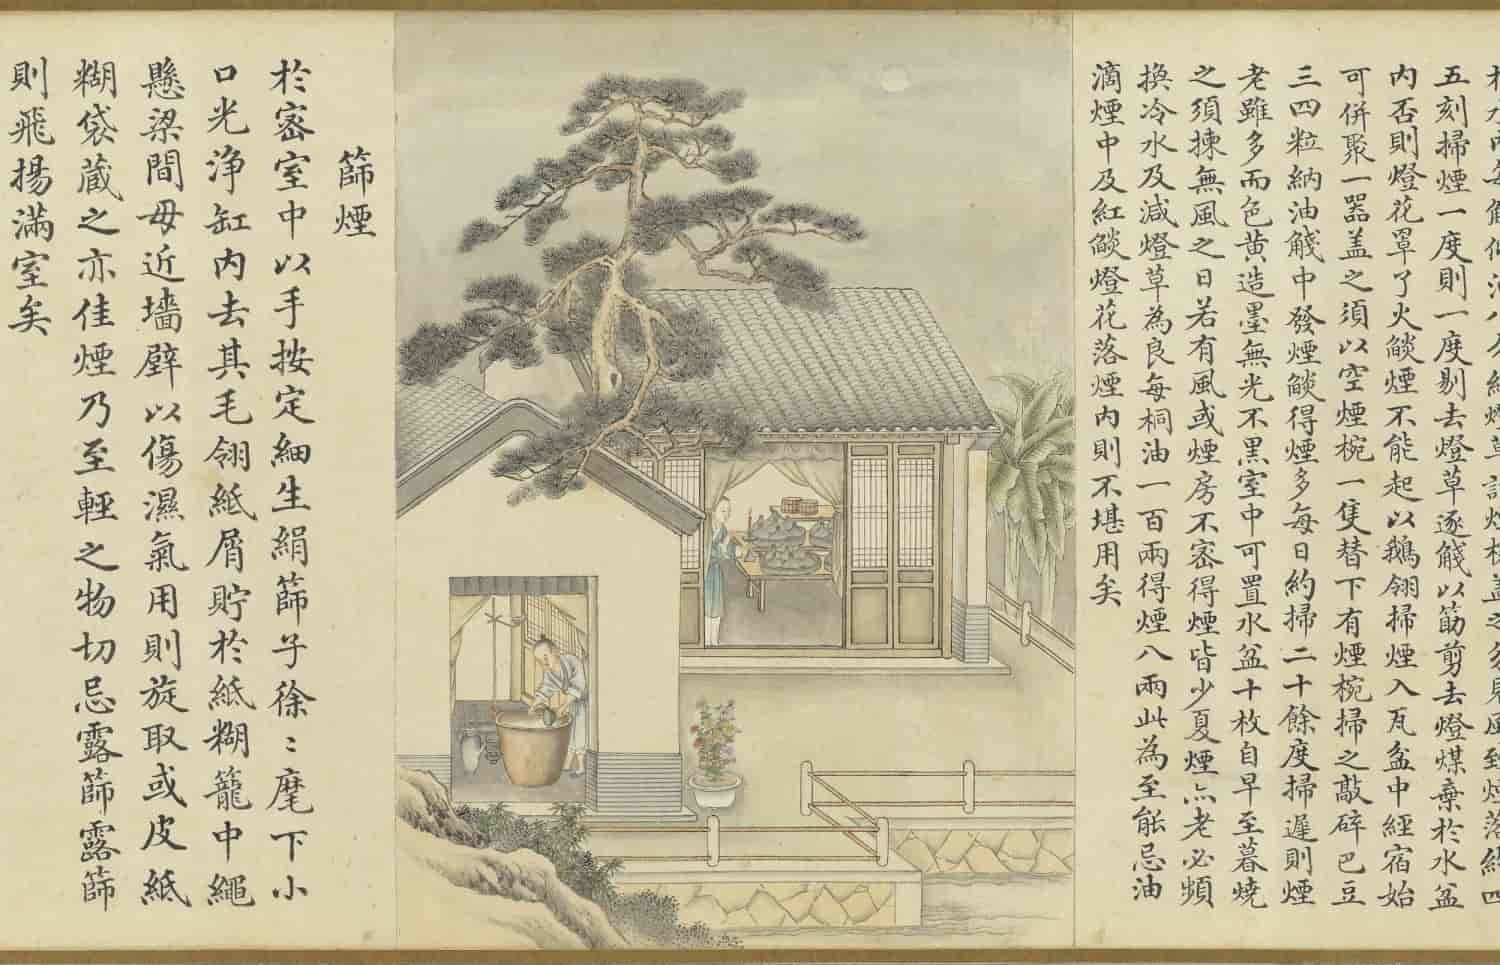 五刻掃煙一度則一度剔去燈草逐𧣴以筯剪去燈煤棄於水盆
内否則燈花罩了火燄煙不能起以鵝翎掃煙入瓦盆中經宿始
可併聚一器盖之須以空煙椀一隻替下有煙椀掃之敲碎巴豆
三四粒納油𧣴中發煙燄得煙多每日約掃二十餘度掃遲則煙
老雖多而色黄造墨無光不黒室中可置水盆十枚自早至暮燒
之須揀無風之日若有風或煙房不宻得煙皆少夏煙亦老必頻
換冷水及減燈草為良每桐油一百兩得煙八兩此為至能忌油
滴煙中及紅燄燈花落煙内則不堪用矣
篩煙
於宻室中以手按定細生絹篩子徐〻麾下小
口光浄缸内去其毛翎紙屑貯於紙糊籠中繩
懸梁間毋近墻壁以傷濕氣用則旋取或皮紙
糊袋藏之亦佳煙乃至輕之物切忌露篩露篩
則飛揚滿室矣